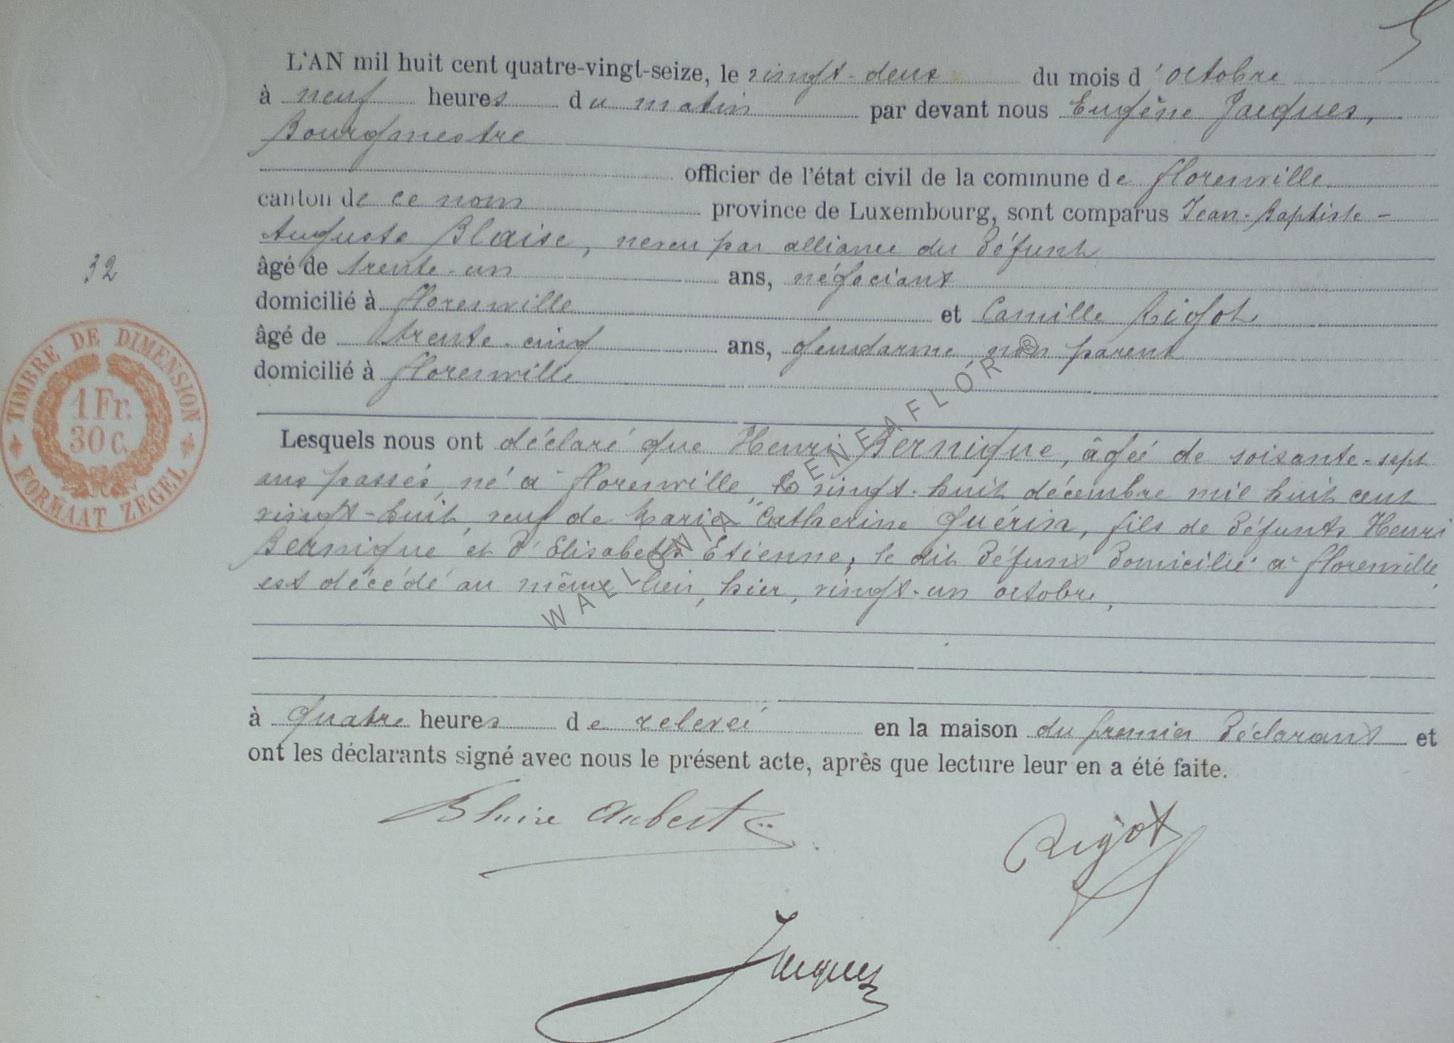 L'AN mil huit cent quatre-vingt-seize, le vingt-deux du mois d'octobre
à neuf heures du matin par devant nous Eugène Jacques,
Bourgmestre
officier de l'état civil de la commune de florenville
canton de ce nom province de Luxembourg, sont comparus Jean-Baptiste-
Auguste Blaise, neveu par alliance du défunt
32
âgé de trente-un ans, négociant
domicilié à florenville et Camille Rigot
âgé de trente-cinq ans, gendarme non parent
domicilié à florenville
TIMBRE DE DIMENSION
1 Fr.
30 c.
FORMAAT ZEGEL
WALLONIA "ENEAFLOR"®
Lesquels nous ont déclaré que Henri Bernique, âgé de soixante-sept
ans passés, né à florenville, le vingt-huit décembre mil huit cent
vingt-huit, veuf de Marie Catherine Guérin, fils de défunts Henri
Bernique et d'Elisabeth Etienne, le dit défunt domicilié à florenville,
est décédé au même lieu, hier, vingt-un octobre,
à quatre heures de relevé en la maison du premier déclarant et
ont les déclarants signé avec nous le présent acte, après que lecture leur en a été faite.
Rigot
Jacques